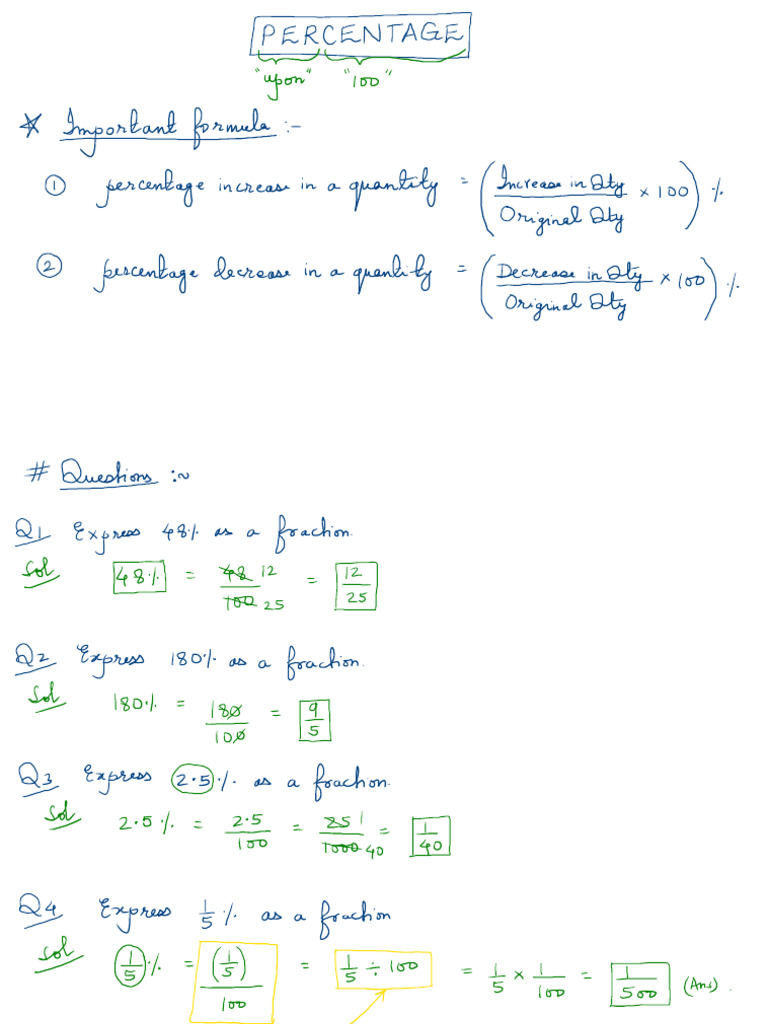 PERCENTAGE
"upon" "100"
* Important formula :-
① percentage increase in a quantity = (Increase in Qty / Original Qty × 100) %
② percentage decrease in a quantity = (Decrease in Qty / Original Qty × 100) %
# Questions :~
Q1 Express 48% as a fraction.
Sol 48% = 48/100 12/25 = 12/25
Q2 Express 180% as a fraction.
Sol 180% = 180/100 = 9/5
Q3 Express 2.5% as a fraction.
Sol 2.5% = 2.5/100 = 25/1000 1/40 = 1/40
Q4 Express 1/5 % as a fraction
Sol 1/5 % = (1/5)/100 = 1/5 ÷ 100 = 1/5 × 1/100 = 1/500 (Ans).